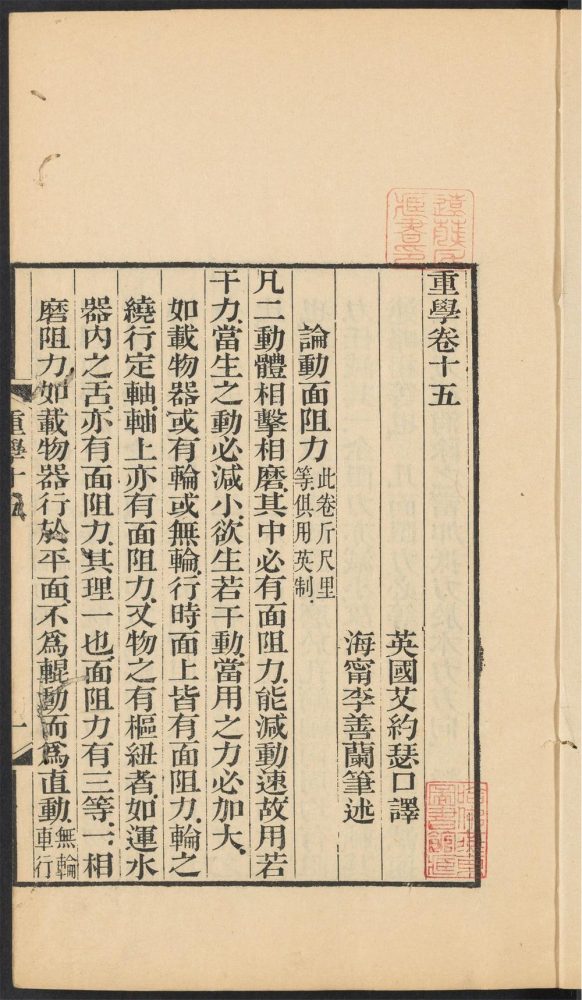 重學卷十五
英國艾約瑟口譯
海甯李善蘭筆述
論動面阻力此卷斤尺里等俱用英制.
凡二動體相擊相磨其中必有面阻力.能減動速故用若
干力.當生之動必減小.欲生若干動.當用之力必加大.
如載物器或有輪或無輪.行時面上皆有面阻力.輪之
繞行定軸.軸上亦有面阻力.又物之有樞紐者.如運水
器內之舌.亦有面阻力.其理一也.面阻力有三等.一.相
磨阻力.如載物器行於平面.不爲輥動而爲直動.無輪車行
重學十五
一